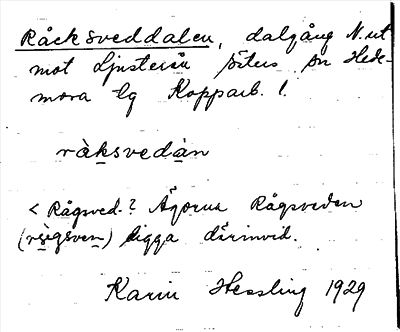 Råcksveddalen, dalgång N. ut
mot Ljusterån Säters sn Hede-
mora tg Kopparb. l.
råksvedàn
< Rågsved-? Ägorna Rågsveden
(rsigsven) ligga därinvid.
Karin Hessling 1929